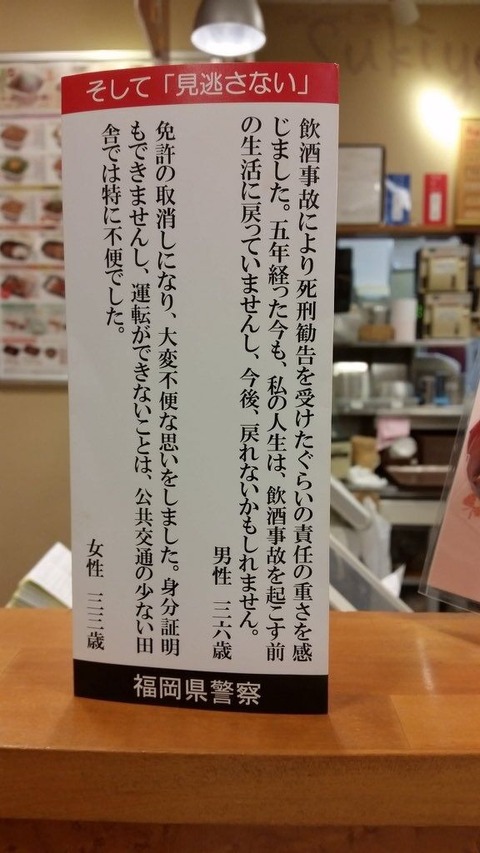 そして「見逃さない」
飲酒事故により死刑勧告を受けたぐらいの責任の重さを感
じました。五年経った今も、私の人生は、飲酒事故を起こす前
の生活に戻っていませんし、今後、戻れないかもしれません。
男性　三六歳
免許の取消しになり、大変不便な思いをしました。身分証明
もできませんし、運転ができないことは、公共交通の少ない田
舎では特に不便でした。
女性　三三歳
福岡県警察